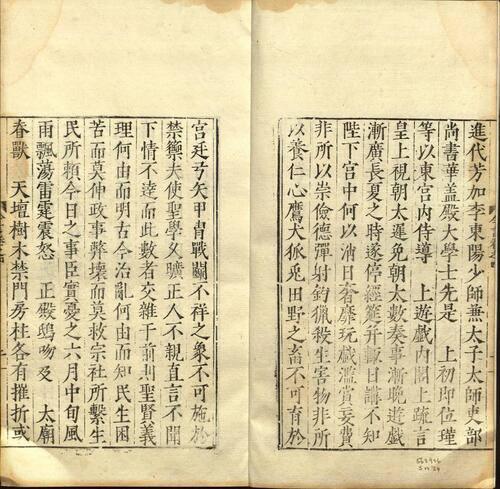 進代芳加李東陽少師兼太子太師吏部
尚書華盖殿大學士先是　上初即位瑾
等以東宮內侍導　上遊戲內閣上疏言
皇上視朝太遲免朝太數奏事漸晚遊戲
漸廣長夏之時遂停經筵并輟日講不知
陛下宮中何以消日奢靡玩戲濫賞妄費
非所以崇儉德彈射釣獵殺生害物非所
以養仁心鷹犬狐兎田野之畜不可育於
宮廷弓矢甲冑戰鬬不祥之象不可施於
禁籞夫使聖學久曠正人不親直言不聞
下情不達而此數者交雜于前則聖賢義
理何由而明古今治亂何由而知民生困
苦而莫伸政事弊壞而莫救宗社所繫生
民所賴今日之事臣實憂之六月中旬風
雨飄蕩雷霆震怒　正殿鴟吻及　太廟
春獸　天壇樹木禁門房柱各有摧折或